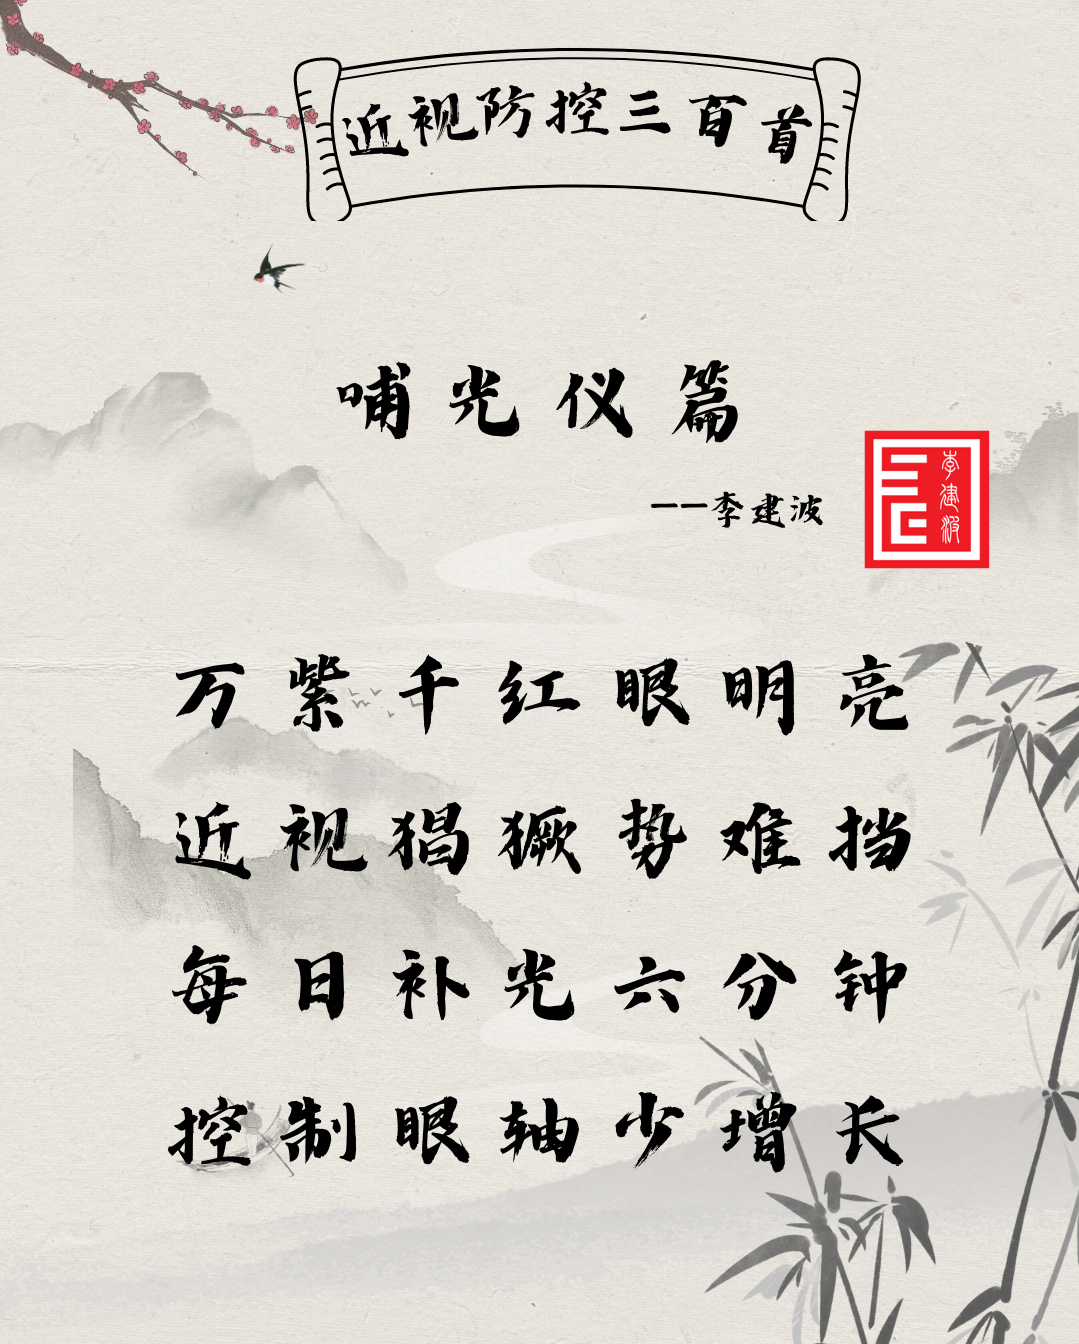 近视防控三百首
哺光仪篇
——李建波
李建波
万紫千红眼明亮
近视猖獗势难挡
每日补光六分钟
控制眼轴少增长